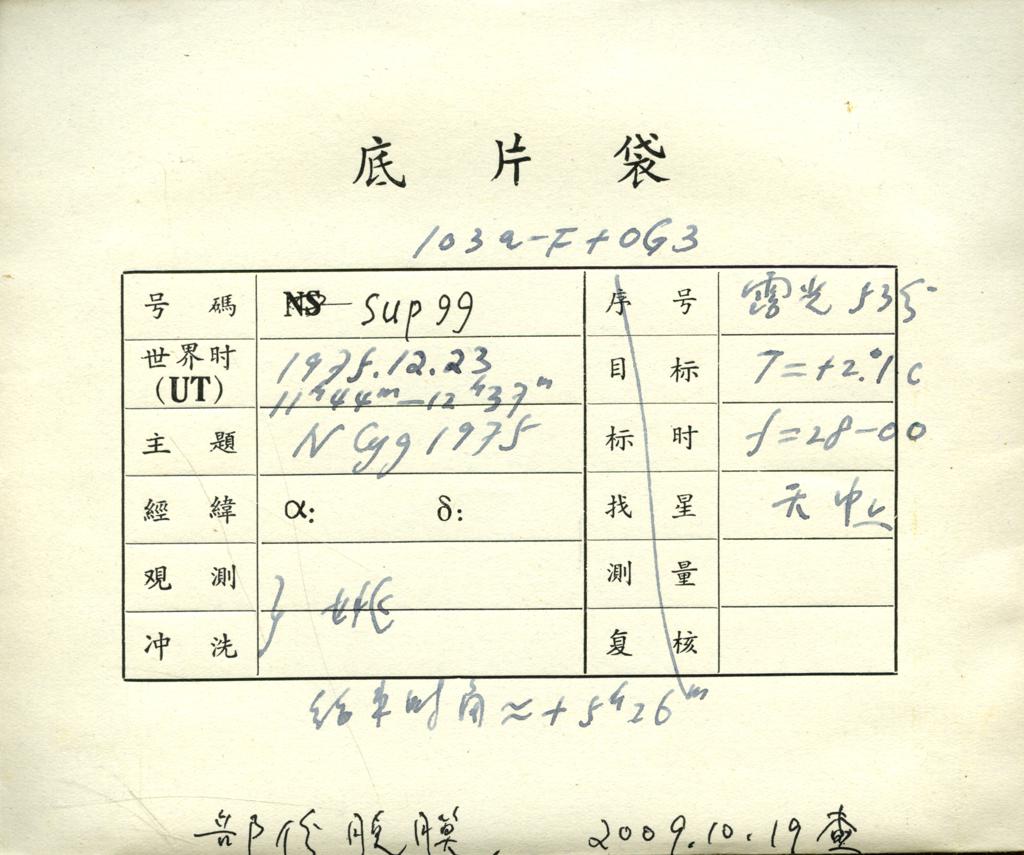 底 片 袋
103a-F+OG3
号 碼 NS Sup 99 序 号 露光 53分
世界时 (UT) 1975.12.23 目 标 T=+2.°1 C
11ʰ44ᵐ—12ʰ37ᵐ
主 題 N Cyg 1975 标 时 f=28-00
經 緯 α: δ: 找 星 天中
观 測 姚 測 量
冲 洗 复 核
结束时角≈+5ʰ26ᵐ
部份脱膜. 2009.10.19 查